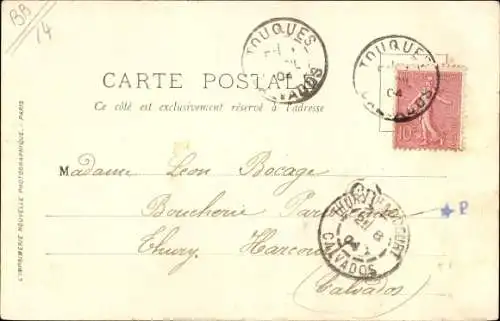 BB
14
TOUQUES
04
CALVADOS
TOUQUES
04
CALVADOS
10c
CARTE POSTALE
Ce côté est exclusivement réservé à l'adresse
Madame Léon Bocage
Boucherie
Thury Harcourt
(Calvados)
THURY-HARCOURT
8
04
CALVADOS
★ P
L'IMPRIMERIE NOUVELLE PHOTOGRAPHIQUE. - PARIS